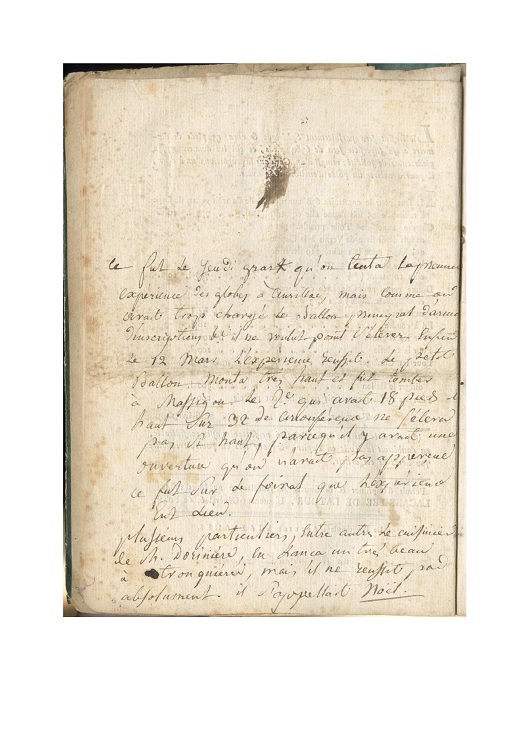 ce fut le jeudi gras qu'on tenta la premier
experience des globes a aurillac, mais comme on
avait trop chargé le Ballon d'armes
d'inscriptions il ne voulut point s'elever. Enfin
Le 12 Mars L'experience reussit. Le petit
Ballon Monta tres haut et fut tomber
à Massigou Le 2e qui avait 18 pieds d
haut sur 32 de circonference ne s'eleva
pas si haut, parcequ'il y avait une
ouverture qu'on n'avait pas apperçue
ce fut sur le foiral que L'experience
Eut Lieu.
plusieurs particuliers, Entre autres Le cuisinier
de M. Dorinière, en Lança un tres beau
à tronquieres, mais il ne reussit pas
absolument. il s'appellait Noël.